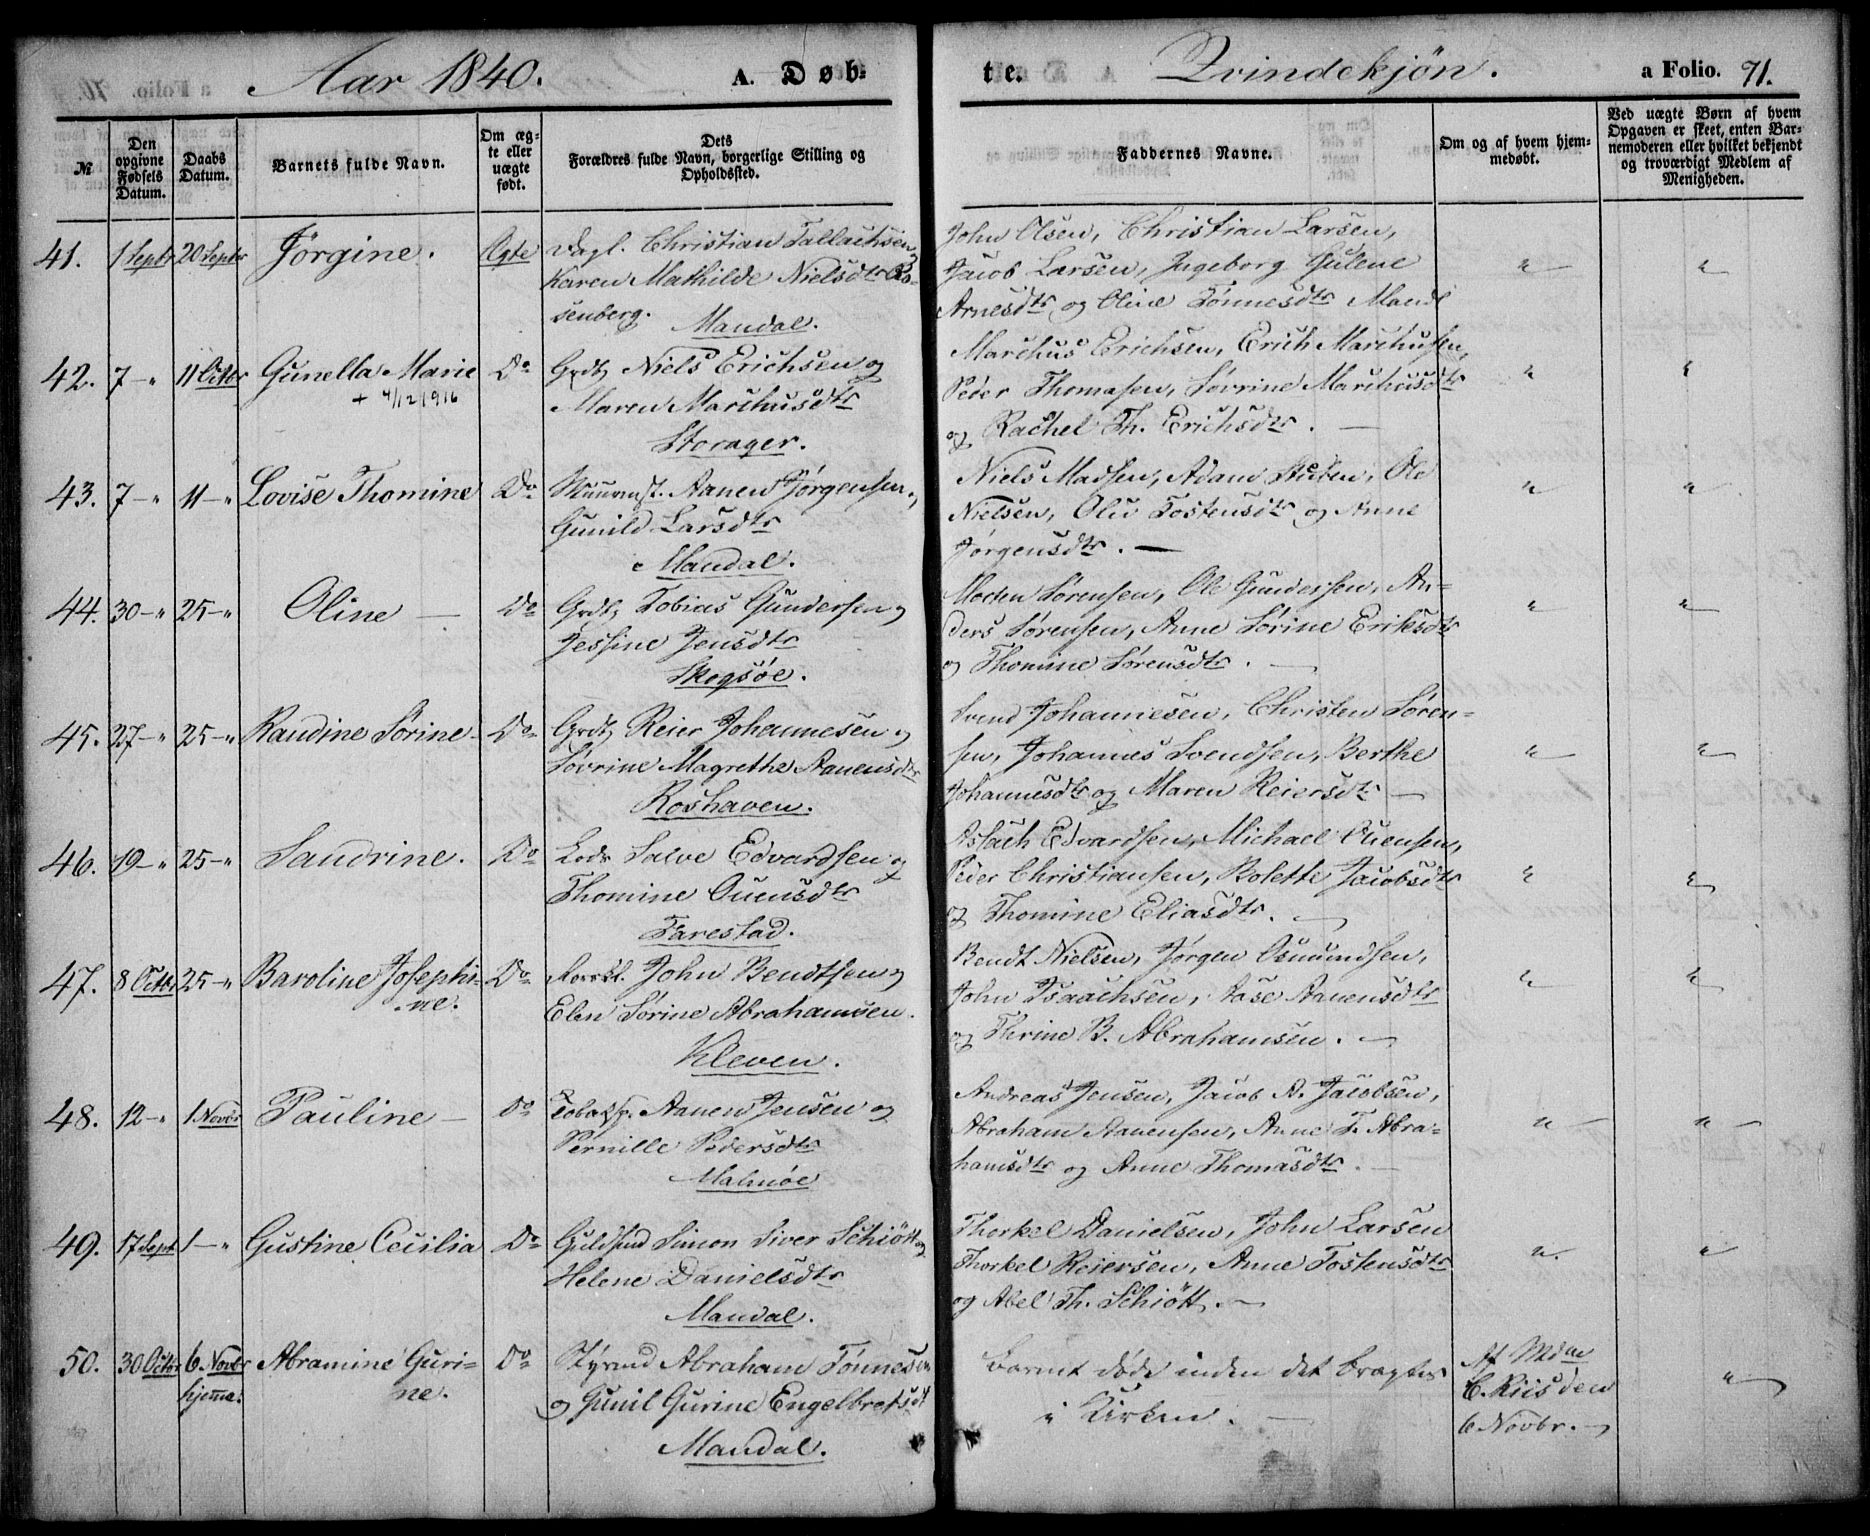 Aar 1840. A. Døb- te. Qvindekjøn. a Folio. 71.
№
Den opgivne Fødsels Datum.
Daabs Datum.
Barnets fulde Navn.
Om ægte eller uægte født.
Dets
Forældres fulde Navn, borgerlige Stilling og
Opholdssted.
Faddernes Navne.
Om og af hvem hjem-
medøbt.
Ved uægte Børn af hvem
Opgaven er skeet, enten Bar-
nemoderen eller hvilket bekjendt
og troværdigt Medlem af
Menigheden.
41. 1 Septr 20 Septr Jørgine. Ægte
Dagl. Christian Tallachsen,
Karen Mathilde Nielsdtr Ro-
senberg. Mandal.
John Olsen, Christian Larsen,
Jacob Larsen, Ingeborg Gulene
Arnesdtr og Oline Tønnesdtr Mandl
" "
42. 7 – " 11 Octbr Gunella Marie Do
+ 4/12 1916
Grdb. Niels Erichsen og
Maren Marchusdtr
Storager.
Marchus Erichsen, Erich Marchusen,
Peder Thomasen, Sovrine Marchusdtr
og Rachel Th. Erichsdtr. —
" "
43. 7 – " 11 – " Lovise Thomine Do
Muurmst. Aanen Jørgensen og
Gunild Larsdtr
Mandal.
Niels Madsen, Adam Stuben, Ole
Nielsen, Oliv Tostensdtr og Anne
Jørgensdtr. —
" "
44. 30 – " 25 – " Oline — Do
Grdb. Tobias Gundersen og
Jessine Jensdtr
Skogsøe.
Morten Sørensen, Ole Gundersen, An-
ders Sørensen, Anne Sørine Eriksdtr
og Thomine Sørensdtr. —
" "
45. 27 – " 25 – " Raudine Sørine Do
Grdb. Reier Johannesen og
Sovrine Magrethe Aanensdtr
Roshaven.
Svend Johannesen, Christen Søren-
sen, Johannes Svendsen, Berthe
Johannesdtr og Maren Reiersdtr —
" "
46. 19 – " 25 – " Sandrine. Do
Lods Salve Edvardsen og
Thomine Ouensdtr
Farestad.
Aslach Edvardsen, Michael Ouensen,
Peder Christiansen, Bolette Jacobsdtr
og Thomine Eliasdtr. —
" "
47. 8 Octbr 25 – " Baroline Josephi- Do
ne.
John Bendtsen og
Elen Sørine Abrahamsen.
Kleven.
Bendt Nielsen, Jørgen Osmundsen,
John Isaachsen, Aase Aanensdtr
og Thrine B. Abrahamsen. —
" "
48. 12 – " 1 Novbr Pauline — Do
Tobaksp. Aanen Jensen og
Pernille Pedersdtr
Malmøe
Andreas Jensen, Jacob A. Jacobsen,
Abraham Aanensen, Anne T. Abra-
hamsdtr og Anne Thomasdtr. —
" "
49. 17 Sept 1 – " Gustine Cecilia Do
Guldsmd Simon Siver Schiött og
Helene Danielsdtr
Mandal.
Thorkel Danielsen, John Larsen
Thorkel Reiersen, Anne Tostensdtr
og Abel Th. Schiött. —
" "
50. 30 Octbr 6 Novbr Abramine Guri- Do
hjemme. ne.
Styrmd Abraham Tønnesen
og Gunil Gurine Engelbretsdt
Mandal.
Barnet døde inden det bragtes
i Kirken. —
Af Mdme
C. Riis den
6 Novbr. —
"